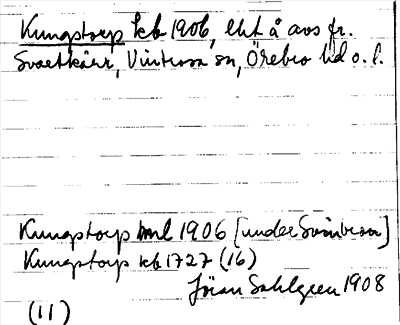 Kungstorp kb 1906, lht å avs fr.
Svartkärr, Vintrosa sn, Örebro hd o. l.
Kungstorp jbml 1906 [under Svinbeson]
Kungstorp kb 1727 (16)
Jöran Sahlgren 1908
(11)